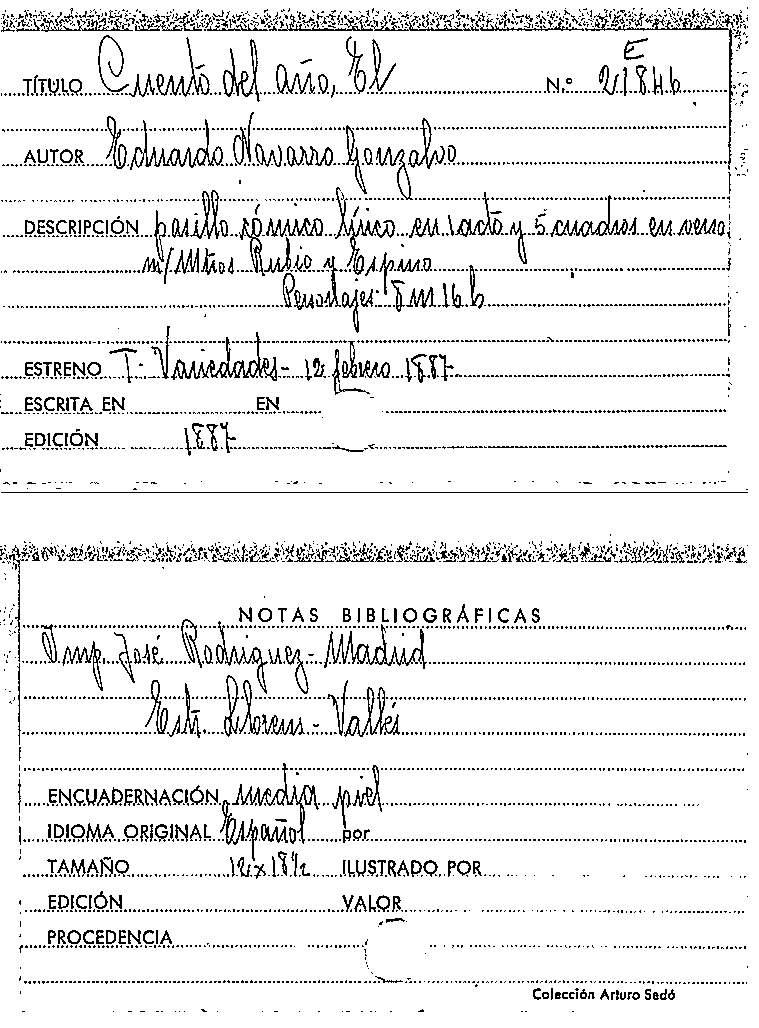 E
TÍTULO Cuento del año, El N.º 21846
AUTOR Eduardo Navarro Gonzalvo
DESCRIPCIÓN pasillo cómico lírico en 1 acto y 5 cuadros en verso
m/ Mtros Rubio y Espino
Personajes 8 m 16 h
ESTRENO T. Variedades - 12 febrero 1887
ESCRITA EN EN
EDICIÓN 1887
NOTAS BIBLIOGRÁFICAS
Imp. José Rodriguez - Madrid
Estr. Llorens - Vallés
ENCUADERNACIÓN media piel
IDIOMA ORIGINAL Español por
TAMAÑO 12 x 18½ ILUSTRADO POR
EDICIÓN VALOR
PROCEDENCIA
Colección Arturo Sedó